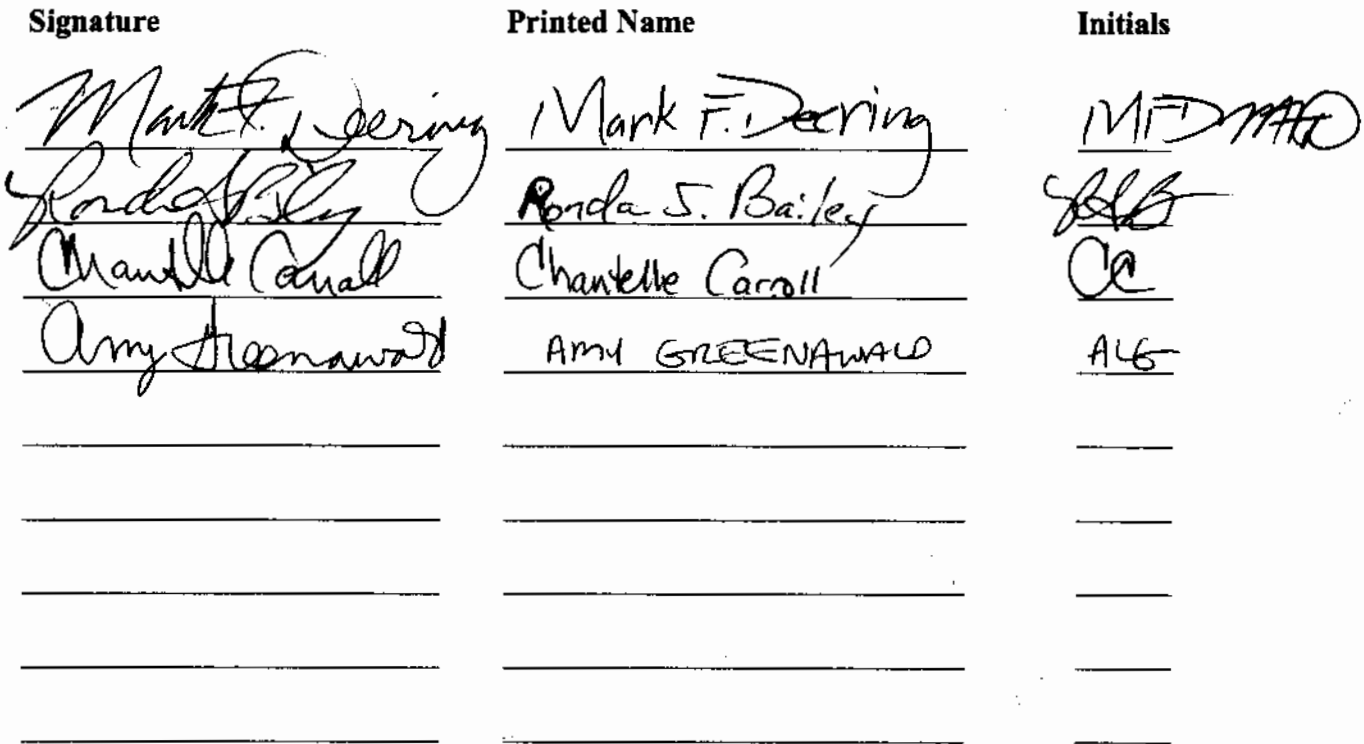 Signature Printed Name Initials
Mark F. Deering Mark F. Deering MFD MFD
Ronda S. Bailey Ronda S. Bailey RSB
Chantelle Carroll Chantelle Carroll CC
Amy Greenawald AMY GREENAWALD ALG